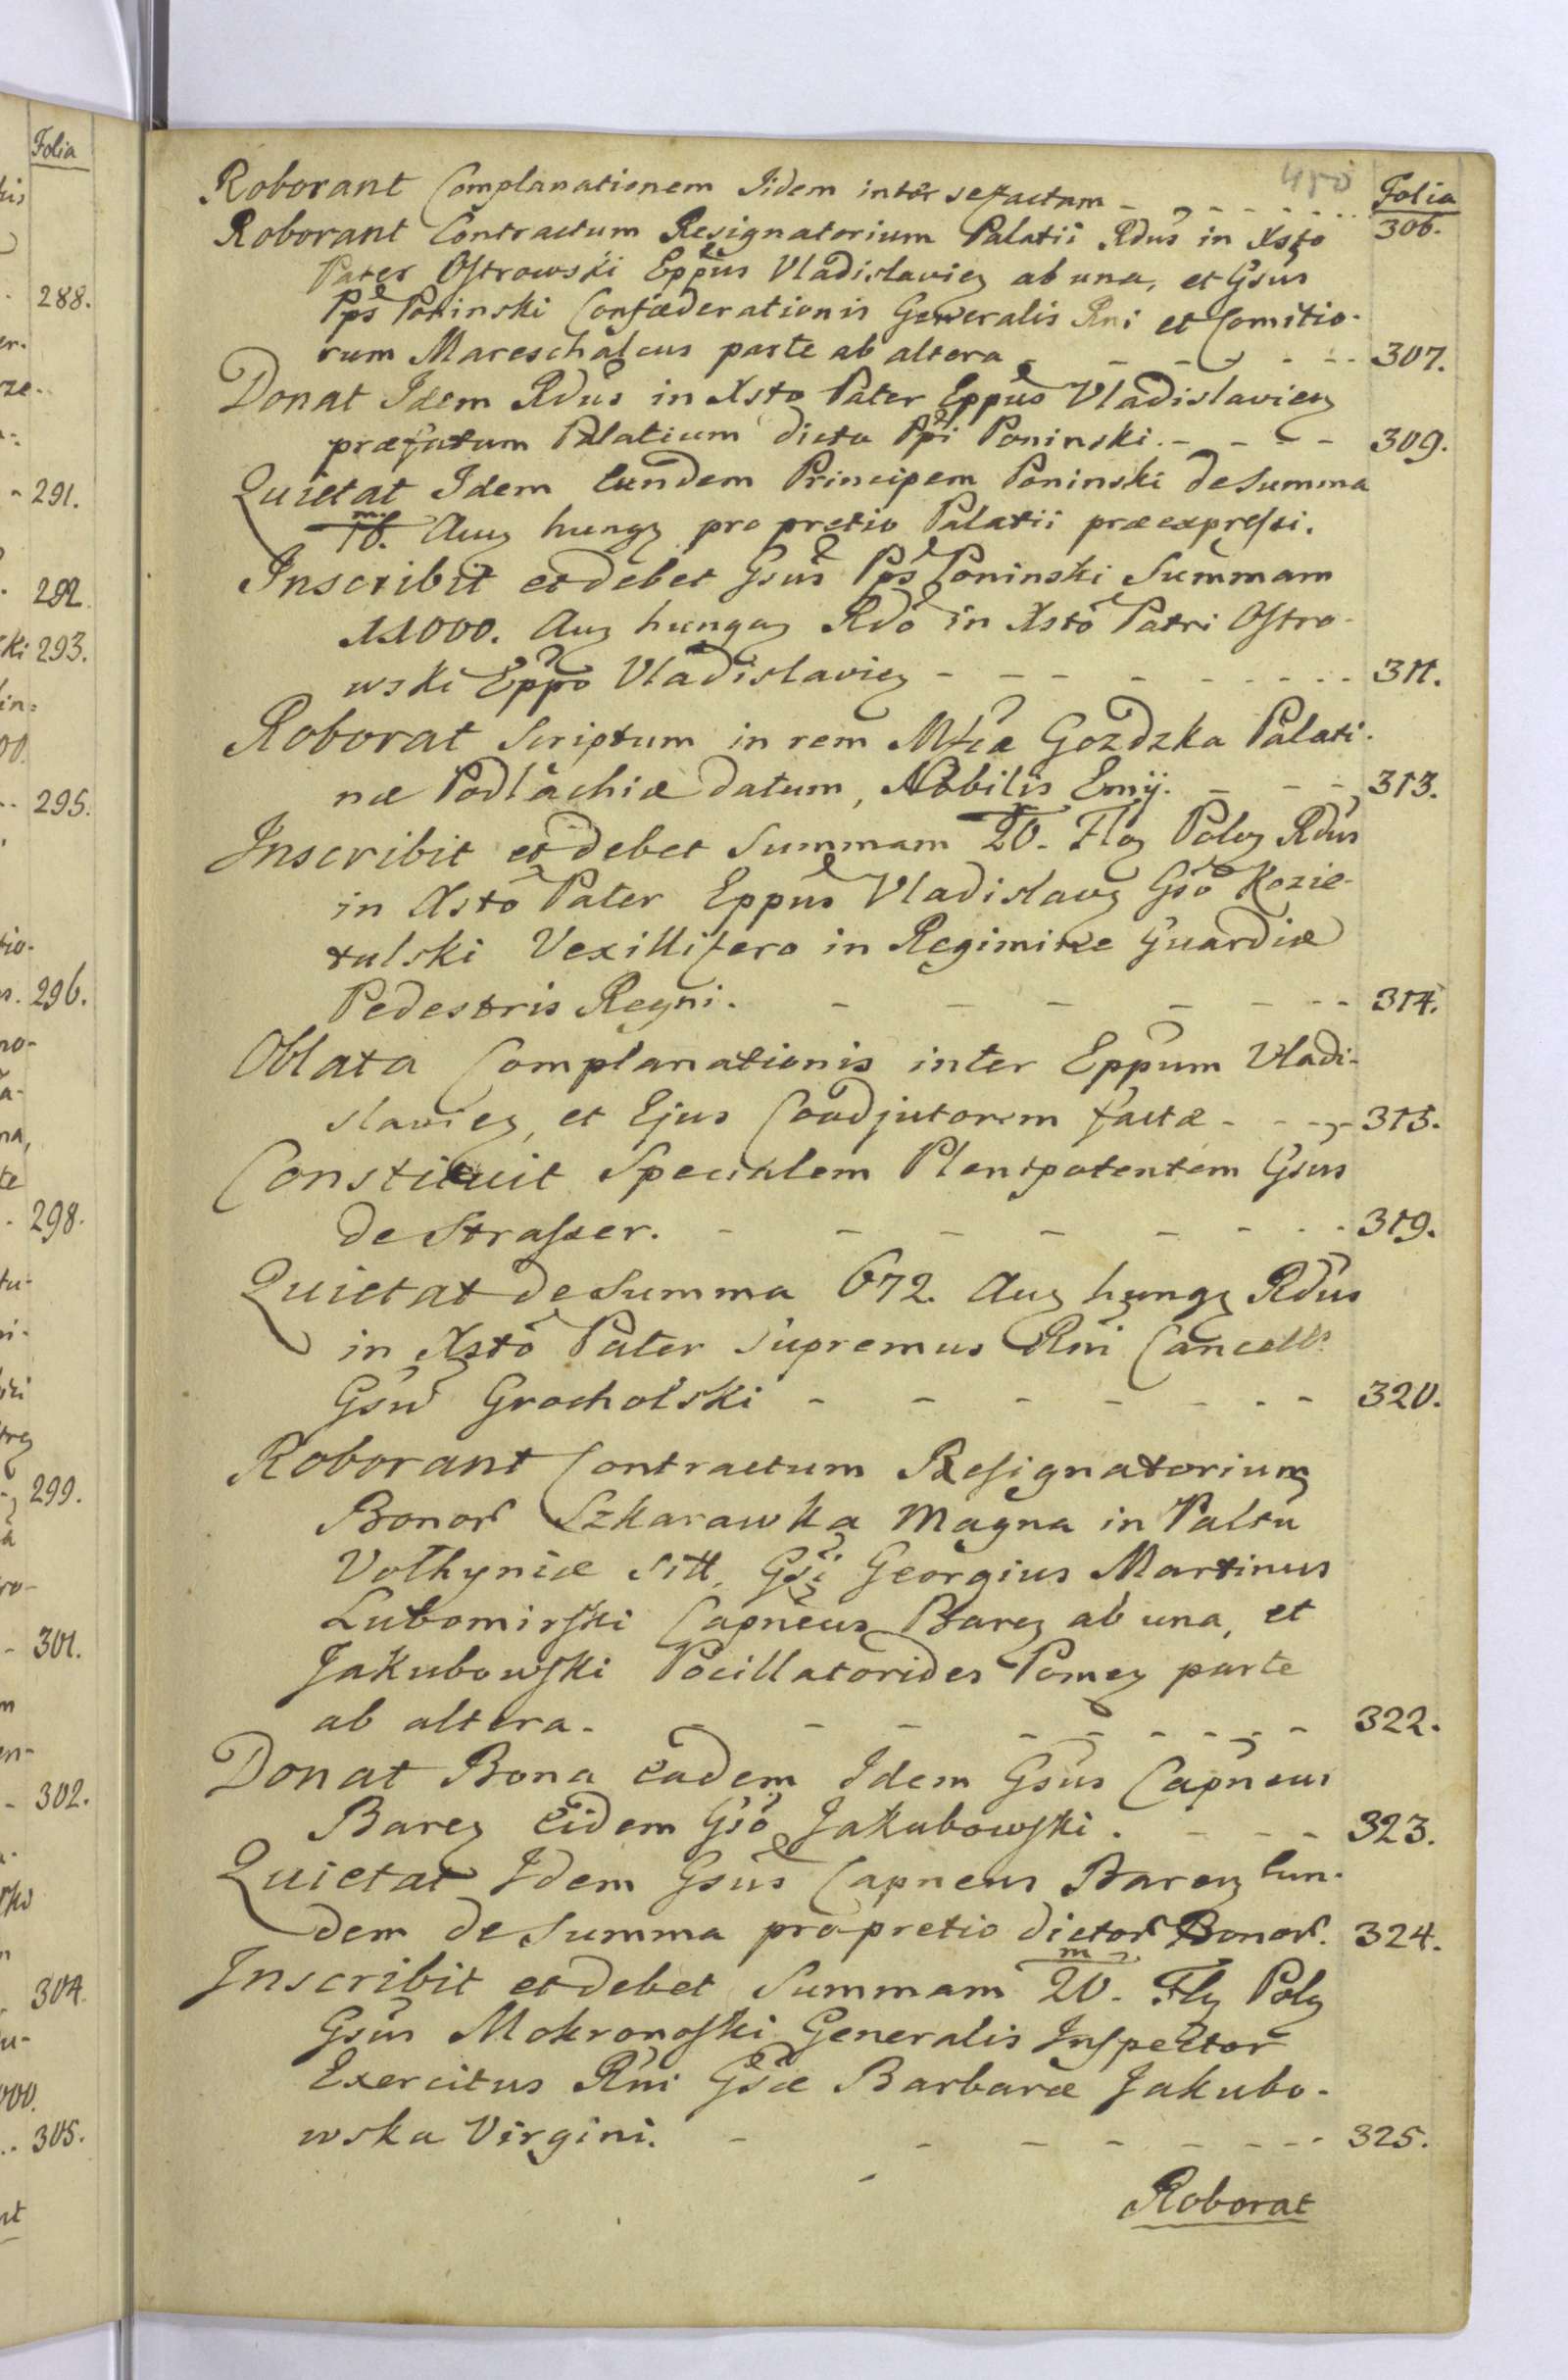 450
Folia
Roborant Complanationem Iidem inter se factam - - - - - - 306.
Roborant Contractum Resignatorium Palatii Rdus in Xsto
Pater Ostrowski Eppus Vladislavien ab una, et Gsus
Pps Poninski Confæderationis Generalis Rni et Comitio-
rum Mareschalcus parte ab altera - - - - - - 307.
Donat Idem Rdus in Xsto Pater Eppus Vladislavien
præfatum Palatium dicto Ppi Poninski. - - - - 309.
Quietat Idem Eundem Principem Poninski de Summa
Aur hung pro pretio Palatii præexpressi.
Inscribit et debet Gsus Pps Poninski Summam
11000. Aur hungar Rdo in Xsto Patri Ostro-
wski Eppo Vladislavien - - - - - - - - 311.
Roborat Scriptum in rem Mtcæ Gozdzka Palati-
næ Podlachiæ datum, Nobilis Emij. - - - 313.
Inscribit et debet Summam 20. Flor Polon Rdus
in Xsto Pater Eppus Vladislav Gso Kozie-
tulski Vexillifero in Regimine Guardiæ
Pedestris Regni. - - - - - - - 314.
Oblata Complanationis inter Eppum Vladi-
slavien, et Ejus Coadjutorem factæ - - - - 315.
Constituit Specialem Plenipotentem Gsus
de Strasser. - - - - - - - - 319.
Quietat de Summa 672. Aur hung Rdus
in Xsto Pater Supremus Rni Cancell
Gsu Grocholski - - - - - - - 320.
Roborant Contractum Resignatorium
Bonor Szkarawka Magna in Paltu
Volhyniæ sitt, Gsi Georgius Martinus
Lubomirski Capneus Baren ab una, et
Jakubowski Pocillatorides Pomer parte
ab altera. - - - - - - - - - 322.
Donat Bona eadem Idem Gsus Capneus
Baren Eidem Gso Jakubowski. - - - 323.
Quietat Idem Gsus Capneus Baren Eun-
dem de Summa pro pretio dictor Bonor. 324.
Inscribit et debet Summam 20. m Flor Pol
Gsus Mokronoski Generalis Inspector
Exercitus Rni Gsæ Barbaræ Jakubo-
wska Virgini. - - - - - - - 325.
Roborat
Folia
288.
291.
292.
293.
295.
296.
298.
299.
301.
302.
304.
305.